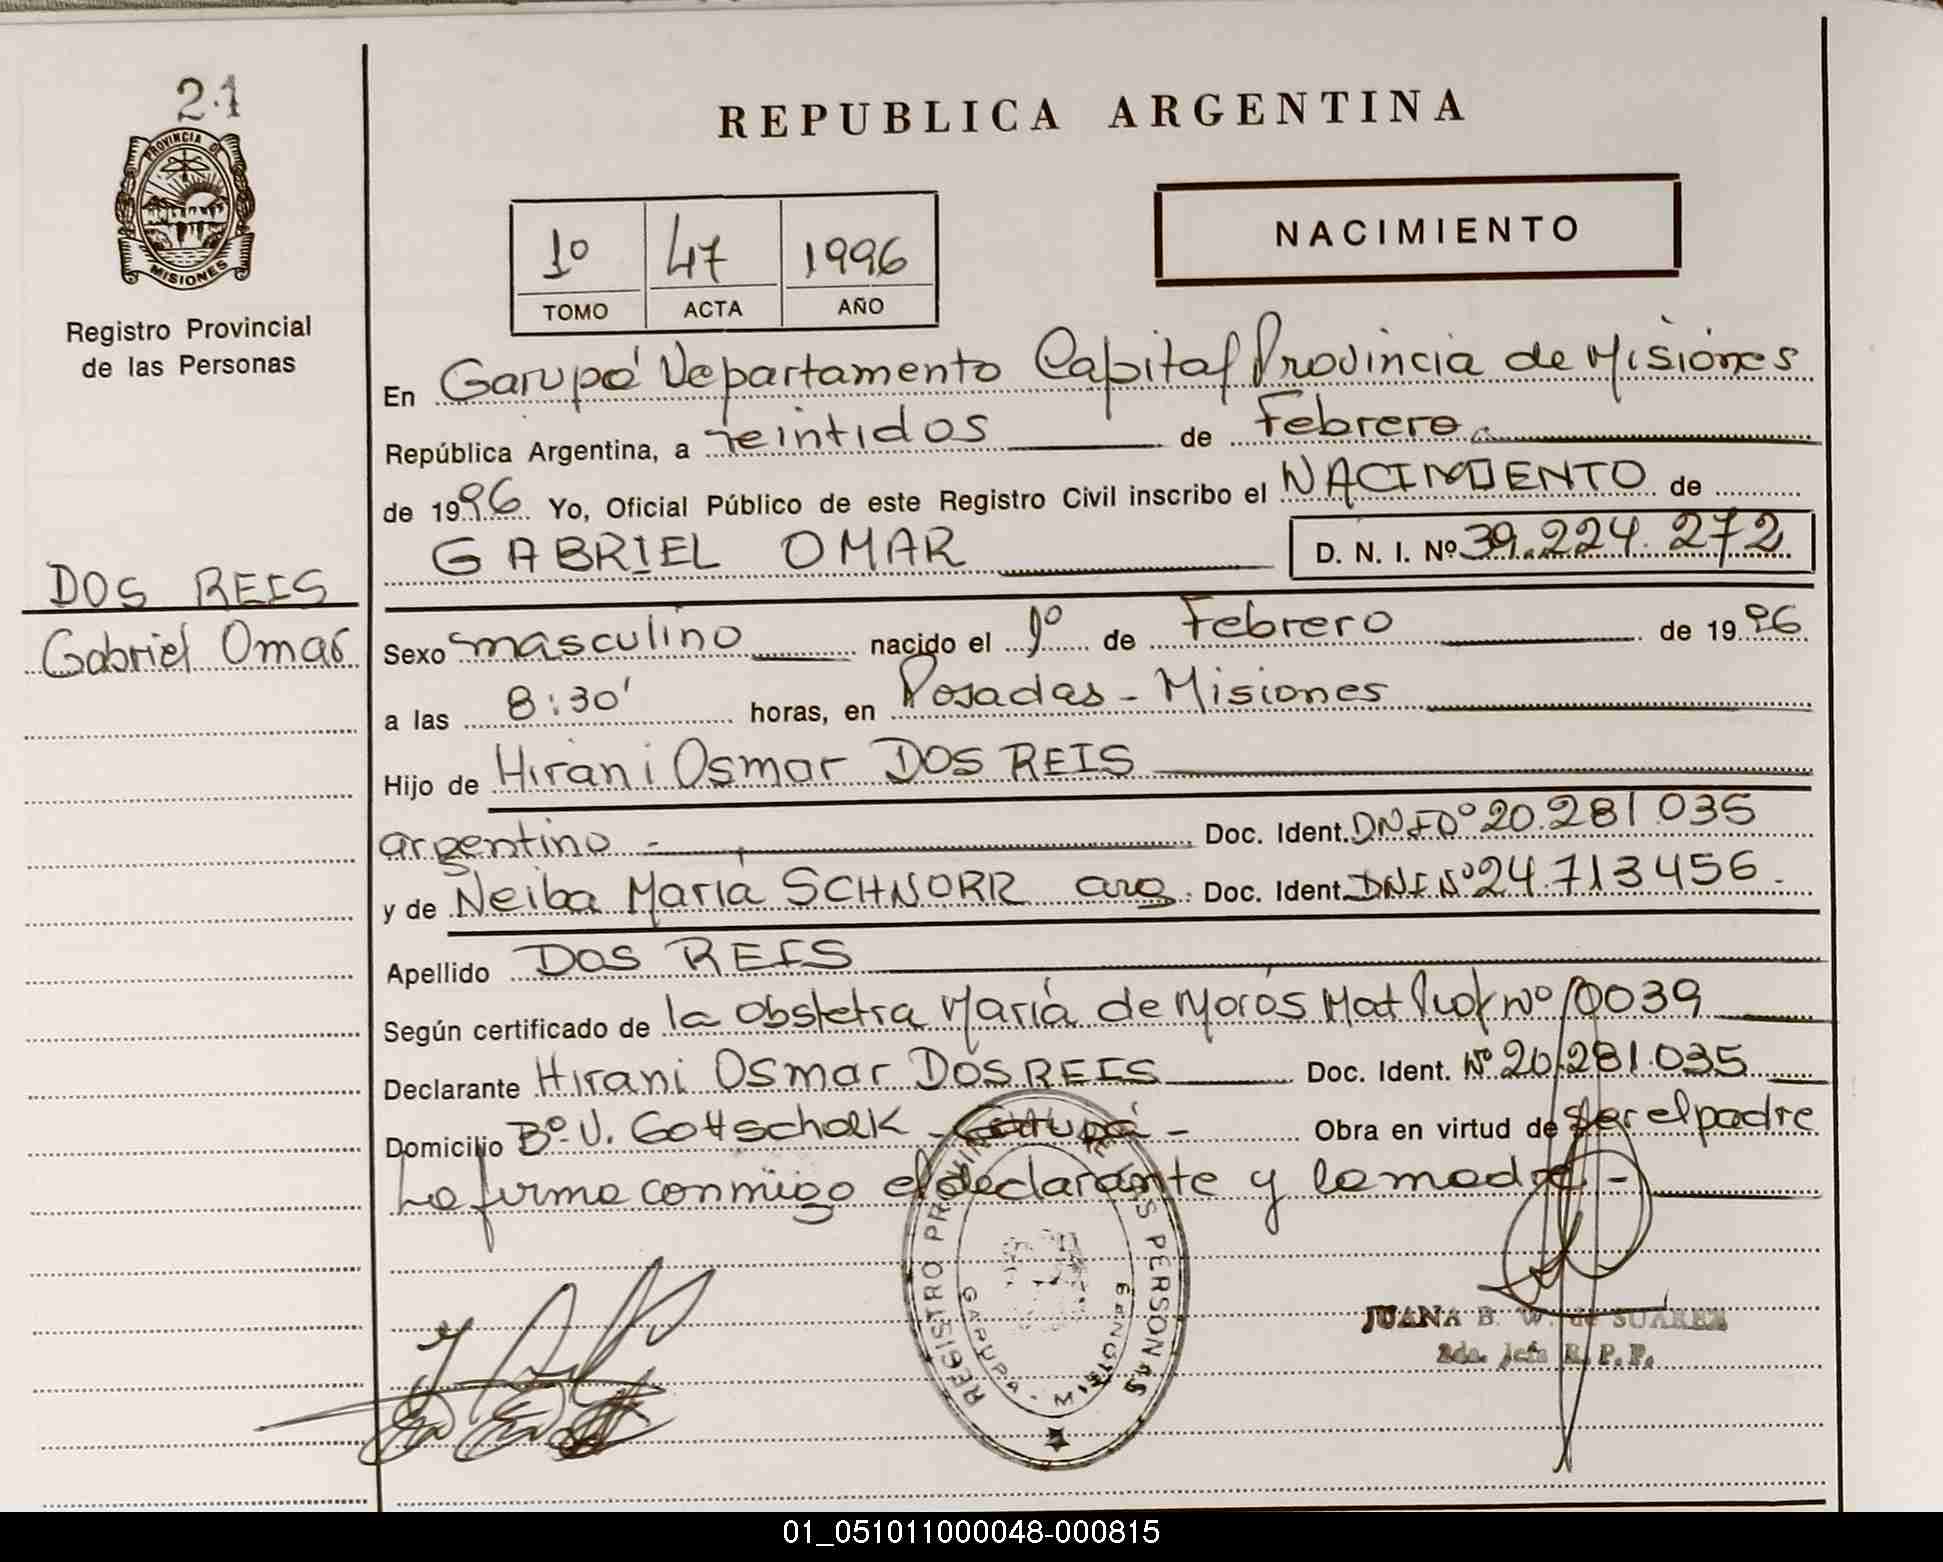 21
PROVINCIA DE
MISIONES
Registro Provincial
de las Personas
DOS REIS
Gabriel Omar
REPUBLICA ARGENTINA
1º 47 1996
TOMO ACTA AÑO
NACIMIENTO
En Garupá Departamento Capital Provincia de Misiones
República Argentina, a veintidos de Febrero.
de 1996 Yo, Oficial Público de este Registro Civil inscribo el NACIMIENTO de
GABRIEL OMAR D. N. I. Nº 39.224.272
Sexo masculino nacido el 1º de Febrero de 1996
a las 8:30' horas, en Posadas - Misiones
Hijo de Hirani Osmar DOS REIS
argentino - Doc. Ident. DNI Nº 20.281.035
y de Neiba María SCHNORR arg. Doc. Ident. DNI Nº 24.713456.
Apellido DOS REIS
Según certificado de la obstetra María de Moros Mat Prof Nº 0039
Declarante Hirani Osmar DOS REIS Doc. Ident. Nº 20.281.035
Domicilio Bº. U. Gottschalk - Garupá - Obra en virtud de ser el padre
La firma conmigo el declarante y la madre -
REGISTRO PROVINCIAL DE LAS PERSONAS
GARUPA - MISIONES
JUANA B. W. de SUAREZ
2da. Jefa R. P. P.
01_051011000048-000815